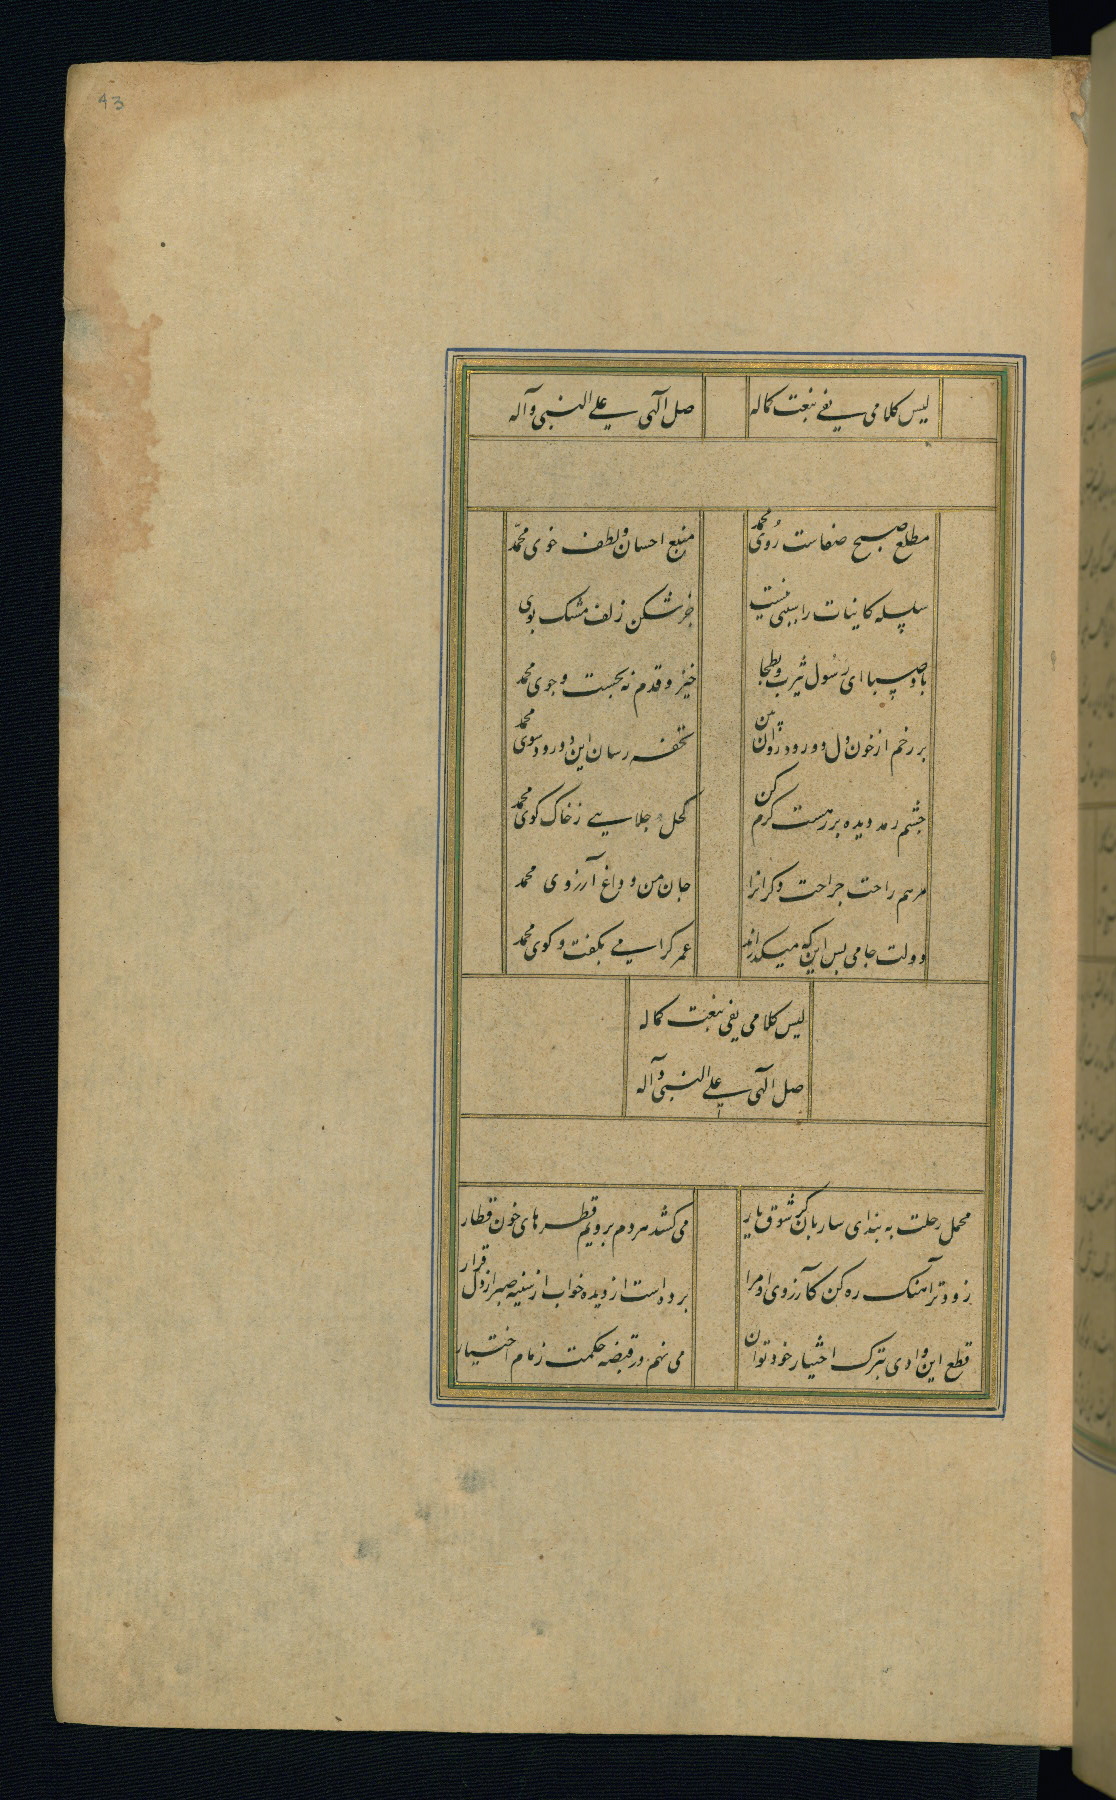 43
لیس کلامی یفی بنعت کماله صل الهی علی النبی وآله
مطلع صبح صفاست روی محمد منبع احسان و لطف خوی محمد
سلسله کاینات را سببی نیست جز شکن زلف مشک بوی محمد
باد صبا ای رسول یثرب و بطحا خیز و قدم نه بجست و جوی محمد
بر رخم از خون دل دو رود روان بین تحفه رسان این دو رود سوی محمد
چشم رمد دیده بر رهست کرم کن کحل جلایی ز خاک کوی محمد
مرهم راحت جراحت دکرانرا جان من و داغ آرزوی محمد
دولت جامی بس این که میکذراند عمر کرامی بکفت و کوی محمد
لیس کلامی یفی بنعت کماله
صل الهی علی النبی وآله
محمل رحلت به بند ای ساربان کز شوق یار می کشد مردم برویم قطره های خون قطار
زودتر آهنک ره کن کآرزوی او مرا برده است از دیده خواب از سینه صبر از دل قرار
قطع این وادی بترک اختیار خود توان می نهم در قبضه حکمت زمام اختیار